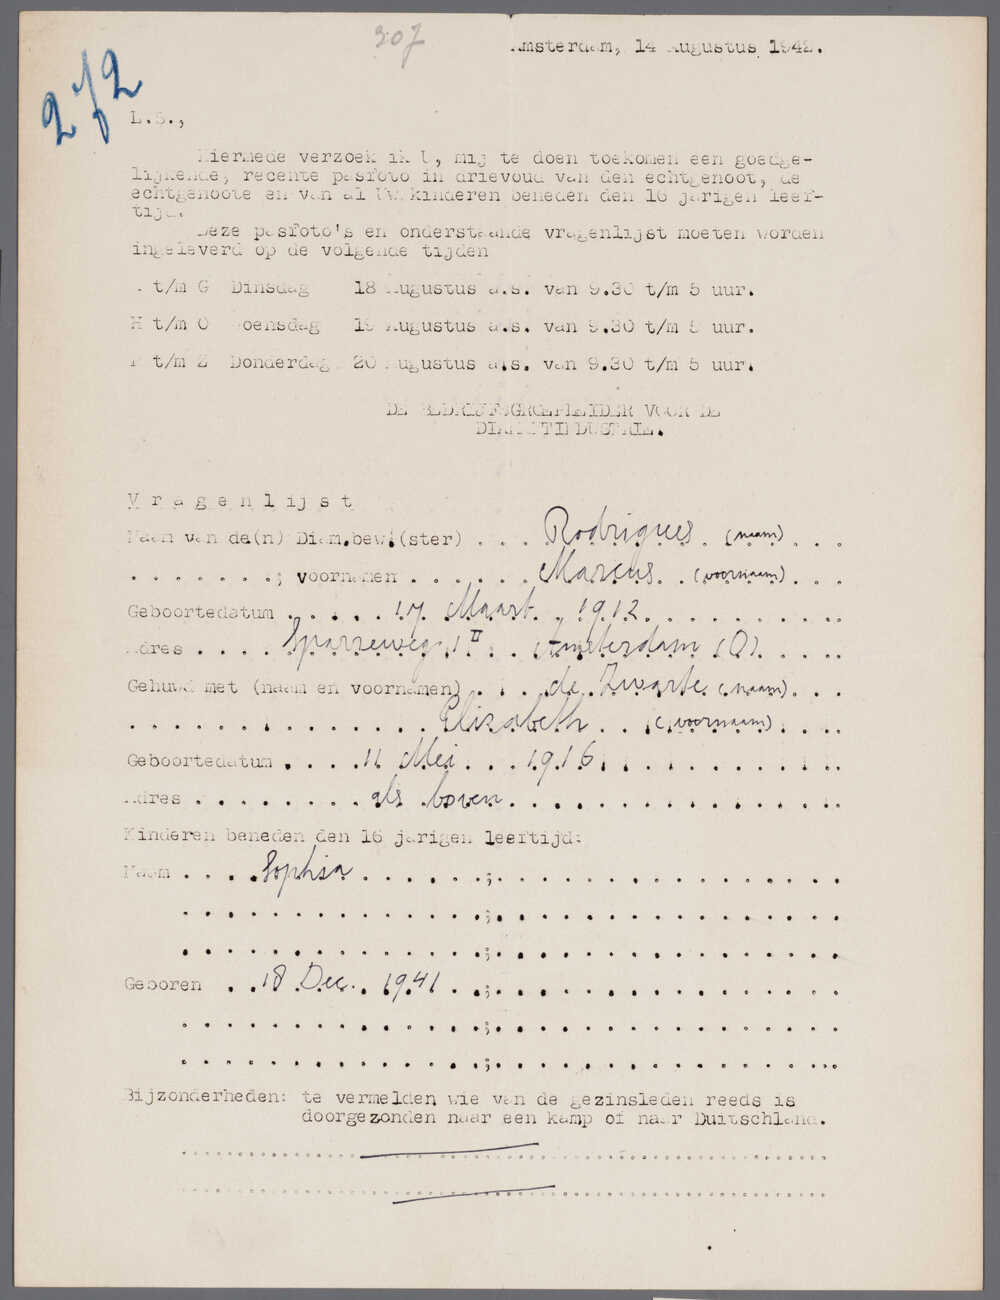 207
Amsterdam, 14 Augustus 1942.
272
L.S.,
Hiermede verzoek ik U, mij te doen toekomen een goedge-
lijkende, recente pasfoto in drievoud van den echtgenoot, de
echtgenoote en van al Uw kinderen beneden den 16 jarigen leef-
tijd.
Deze pasfoto's en onderstaande vragenlijst moeten worden
ingeleverd op de volgende tijden
A t/m G Dinsdag 18 Augustus a.s. van 9.30 t/m 5 uur.
H t/m O Woensdag 19 Augustus a.s. van 9.30 t/m 5 uur.
P t/m Z Donderdag 20 Augustus a.s. van 9.30 t/m 5 uur.
DE BEDRIJFSGROEPLEIDER VOOR DE
DIAMANTINDUSTRIE.
V r a g e n l i j s t
Naam van de(n) Diam.bew.(ster) . . . Rodrigues (naam) . . .
. . . . . . . ; voornamen . . . . . . Marcus (voornaam) . . .
Geboortedatum . . . . . 17 Maart 1912 . . . . . . . . .
Adres . . . . Sparreweg 1 II . . Amsterdam (O) . . . .
Gehuwd met (naam en voornamen) . . . de Zwarte (naam) . . .
. . . . . . . . . . . . . . Elizabeth . . (voornaam) . . . .
Geboortedatum . . . . 11 Mei . . . 1916 . . . . . . . . . . .
Adres . . . . . . . . als boven . . . . . . . . . . . . . . .
Kinderen beneden den 16 jarigen leeftijd:
Naam . . . . Sophia . . . . . . ; . . . . . . . . . . . . . . .
. . . . . . . . . . . . . . ; . . . . . . . . . . . . . . .
. . . . . . . . . . . . . . ; . . . . . . . . . . . . . . .
Geboren . . 18 Dec. 1941 . . ; . . . . . . . . . . . . . . .
. . . . . . . . . . . . . . ; . . . . . . . . . . . . . . .
. . . . . . . . . . . . . . ; . . . . . . . . . . . . . . .
Bijzonderheden: te vermelden wie van de gezinsleden reeds is
doorgezonden naar een kamp of naar Duitschland.